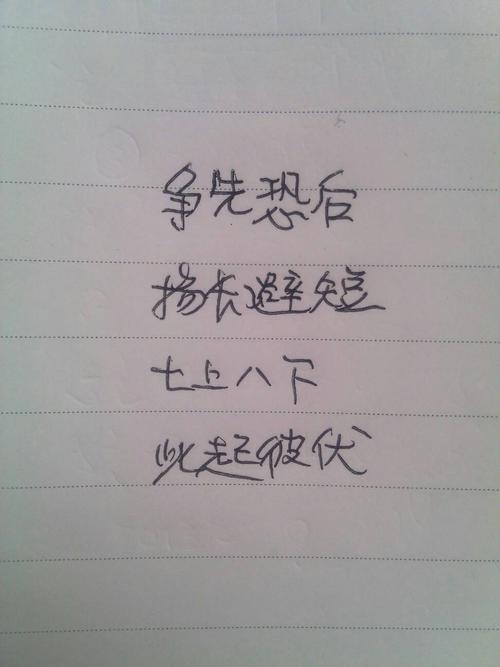 争先恐后
扬长避短
七上八下
此起彼伏